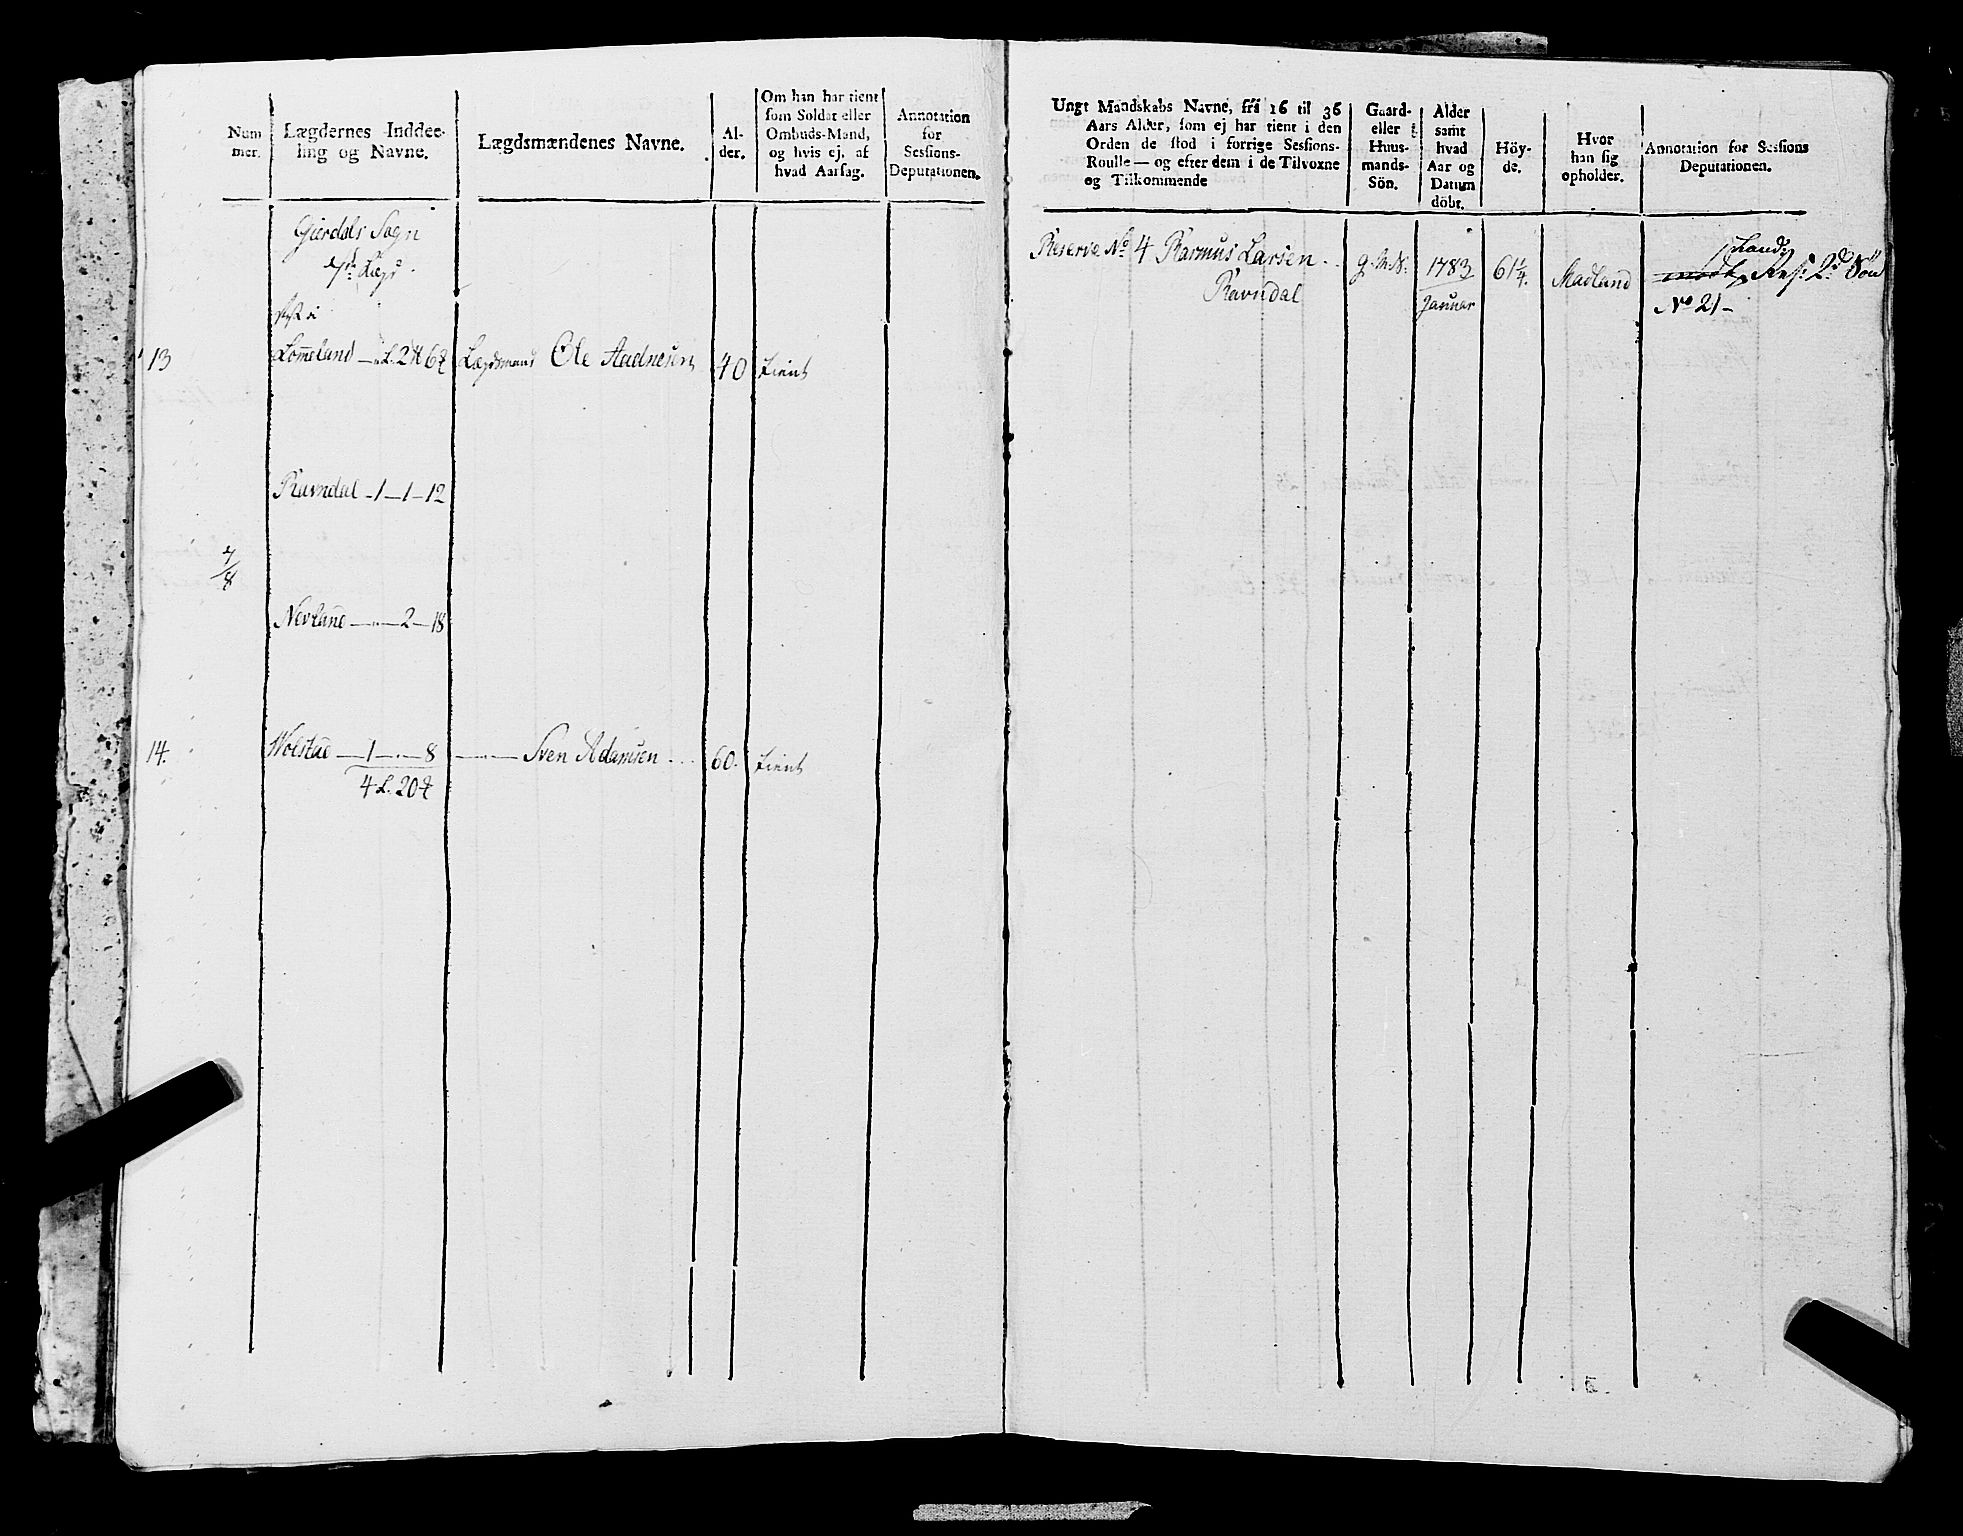 Num
mer.
Lægdernes Inddee-
ling og Navne.
Lægdsmændenes Navne.
Al-
der.
Om han har tient
som Soldat eller
Ombuds-Mand,
og hvis ej, af
hvad Aarsag.
Annotation
for
Sessions-
Deputationen.
Gierdals Sogn
7de Lægd.
13
Lomeland — „ L. 2 # 6 ¢ Lægdsmand Ole Aadnesen 40 tient
Ravndal - 1 — 1 - 12
7/8
Nevland — „ — 2 — 18
14. Wolstad — 1 — „ — 8 — „ — Sven Adamsen 60. tient
4 L. 20 ¢
Ungt Mandskabs Navne, frå 16 til 36
Aars Alder, som ej har tient i den
Orden de stod i forrige Sessions-
Roulle — og efter dem i de Tilvoxne
og Tilkommende
Gaard-
eller
Huus-
mands-
Sön.
Alder
samt
hvad
Aar og
Datum
döbt.
Höy-
de.
Hvor
han sig
opholder.
Annotation for Sessions
Deputationen.
Reserve No 4 Rasmus Larsen g. M. N. 1783 61 1/4. Madland Res: 2d
Ravndal Januar No 21 -